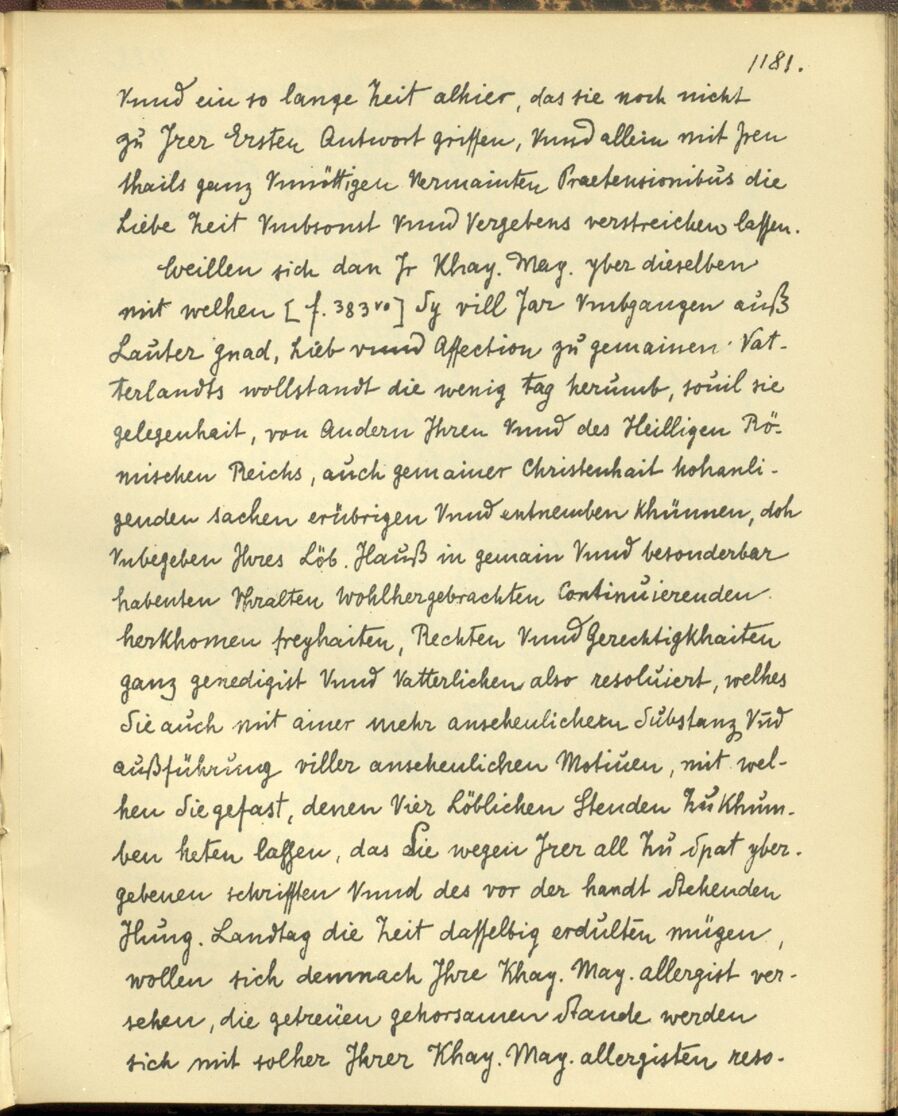 1181.
Vnnd ein so lange Zeit alhier, das sie noch nicht
zu Jrer Ersten Antwort griffen, Vnnd allein mit Jren
thails ganz Vnnöttigen Vermainten Praetensionibus die
Liebe Zeit Vmbsonst Vnnd Vergebens verstreichen lassen.
Weillen sich dan Jr Khay. May. yber dieselben
mit welhen [f. 383vo] Sy vill Jar Vmbgangen auß
Lauter gnad, Lieb vnnd Affection zu gemainen Vat-
terlandts wollstandt die wenig tag herumb, souil sie
gelegenhait, von Andern Ihren Vnnd des Heilligen Rö-
mischen Reichs, auch gemainer Christenhait hohanli-
genden sachen erübrigen Vnnd entnemben Khünnen, doh
Vnbegeben Ihres Löb. Hauß in gemain Vnnd besonderbar
habenten Vhralten Wohlhergebrachten Continuierenden
herkhomen freyhaiten, Rechten Vnnd Gerechtigkhaiten
ganz genedigist Vnnd Vatterlichen also resoluiert, welhes
Sie auch mit ainer mehr ansehenlichern Substanz Vnd
außführung viller ansehenlichen Motiuen, mit wel-
hen Sie gefast, denen Vier Löblichen Stenden Zu Khum-
ben heten lassen, das Sie wegen Jrer all Zu Spat yber-
gebenen schrifften Vnnd des vor der handt Stehenden
Hung. Landtag die Zeit dasselbig erdulten mügen,
wollen sich demnach Ihre Khay. May. allergist ver-
sehen, die getreüen gehorsamen Stande werden
sich mit solher Ihrer Khay. May. allergisten reso-